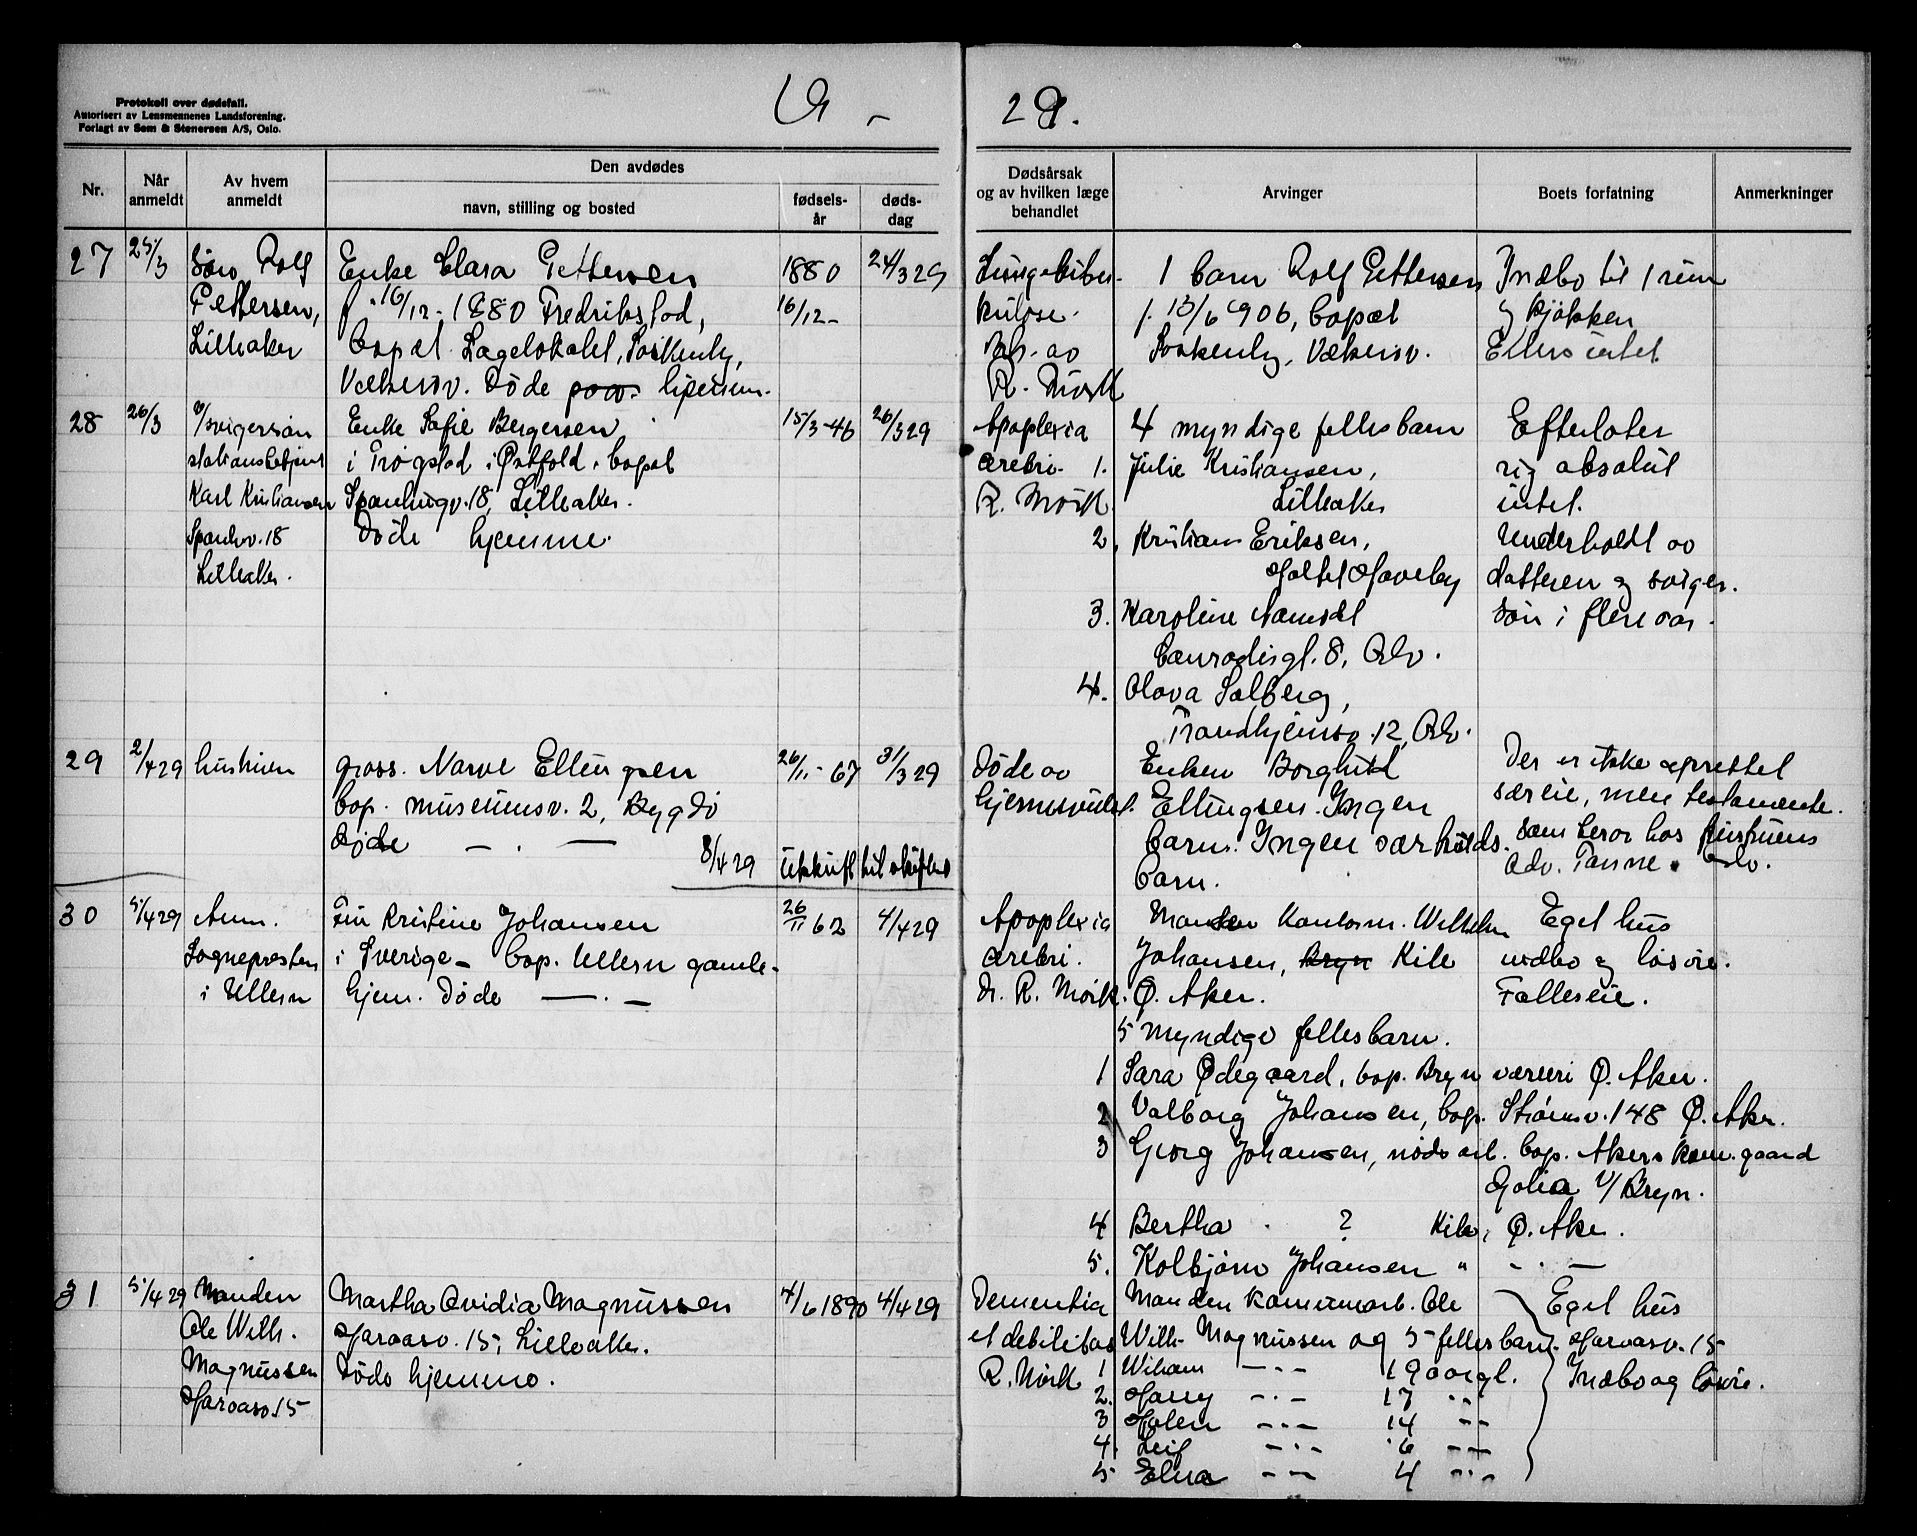 Protokoll over dødsfall.
Autorisert av Lensmennenes Landsforening.
Forlagt av Sem & Stenersen A/S, Oslo.
29.
Nr.
Når anmeldt
Av hvem anmeldt
Den avdødes
navn, stilling og bosted
fødsels-år
døds-dag
Dødsårsak og av hvilken læge behandlet
Arvinger
Boets forfatning
Anmerkninger
27
25/3
Søn Rolf
Pettersen,
Lilleaker
Enke Clara Pettersen
f. 16/12-1880 Fredrikstad,
bopæl
Vækerøv. Døde hjemme.
1880
16/12-
24/3 29
Lungetuber-
kulose.
Beh. av
R. Mørk
1 barn Rolf Pettersen
f. 13/6 906, bopæl
Vækerøv.
Indbo til 1 rum
og kjøkken
Ellers intet
28
26/3
v/svigersøn
stationsbetjent
Karl Kristiansen
Spankv. 18
Lilleaker.
Enke Sofie Bergersen
i Trøgstad i Østfold. bopæl
18, Lilleaker.
Døde hjemme.
15/3-46
26/3 29
Apoplexia
cerebri.
R. Mørk.
4 myndige fellesbarn
1. Julie Kristiansen,
Lilleaker
2. Kristian Eriksen,
Holtet Haveby
3. Karoline
8, Oslo.
4. Olava Solberg,
Trondhjemsv. 12, Oslo.
Efterlater
sig absolut
intet.
Underholdt av
datteren og sviger-
søn i flere aar.
29
2/4 29
hustruen
gross. Narve Ellingsen
bop. Museumsv. 2, Bygdø
Døde — . —
8/4 29 Utskrift til skifteret
26/11-67
31/3 29
Døde av
Enken Borghild
Ellingsen. Ingen
barn. Ingen særkulds
barn.
Der er ikke oprettet
særeie, men testamente
som beror hos hustruens
adv. Oslo.
30
5/4 29
Anm.
Sognepresten
i Ullern
Fru Kristine Johansen
i Sverige - bop. Ullern gamle-
hjem. Døde — . —
26/11 62
4/4 29
Apoplexia
cerebri.
dr. R. Mørk.
Manden Wilhelm
Johansen, Bryn
Ø. Aker.
5 myndige fellesbarn.
Eget hus
indbo og løsøre.
Felleseie.
1 Sara Ødegaard, bop. Bryn Ø. Aker.
2 Valborg Johansen, bop. Strømsv. 148 Ø. Aker.
3 Georg Johansen, nødsarb. bop. Akers gaard
v/Bryn.
4 Bertha . ? Ø. Aker.
5. Kolbjørn Johansen " - . -
31
5/4 29
Manden
Ole Wilh.
Magnussen
15
Martha Ovidia Magnussen
15, Lilleaker.
Døde hjemme.
4/6 1890
4/4 29
Dementia
et debilitas
R. Mørk
Manden Ole
Wilh. Magnussen og 5 fellesbarn.
1 William — . — 19 aar gl.
2. Harry — . — 17 - -
3 — . — 14 - -
4. Leif — . — 6 - -
5 Elna — — 4 - . -
Eget hus
15
Indbo og løsøre.